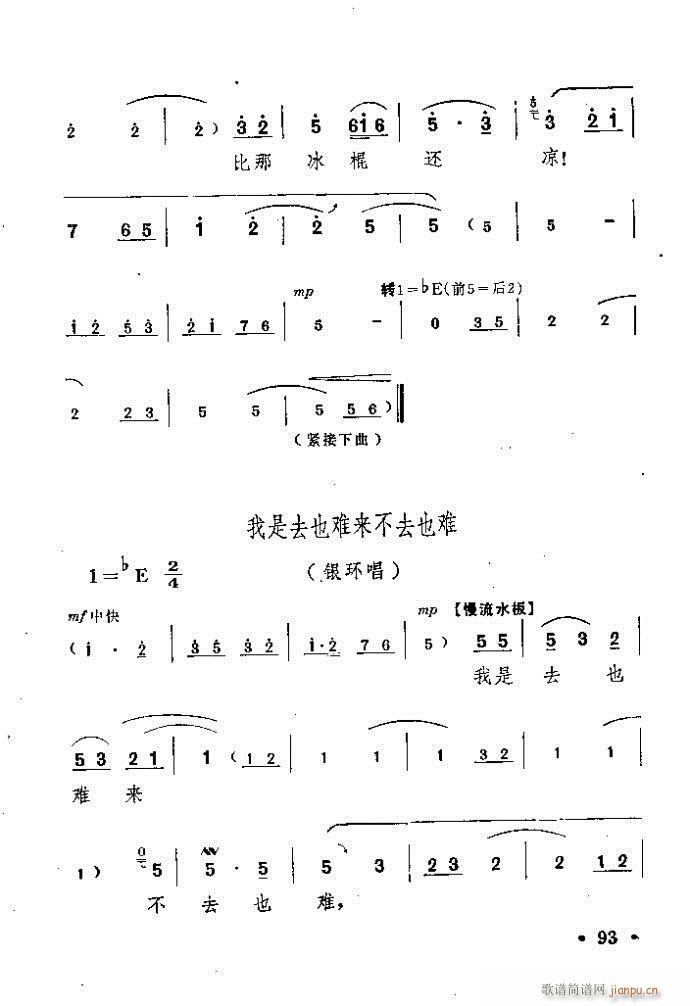 2̇ 2̇ | 2̇ ) 3̇ 2̇ | 5̇ 6 1̇ 6 | 5̇ · 3̇ | 3̇ 2̇ 1̇
比那 冰 棍 还 凉!
7 6 5 | 1̇ 2̇ | 2̇ 5 | 5 ( 5 | 5 -
mp 转1=♭E(前5=后2)
1̇ 2̇ 5 3̇ | 2̇ 1̇ 7 6 | 5 - | 0 3 5 | 2 2
2 2 3 | 5 5 | 5 5 6 ) ‖
(紧接下曲)
我是去也难来不去也难
1=♭E 2/4 (银环唱)
mf中快 mp 【慢流水板】
( 1̇ · 2̇ | 3̇ 5 3̇ 2̇ | 1̇ · 2̇ 7 6 | 5 ) 5 5 | 5 3 2
我是 去 也
5 3 2 1 | 1 ( 1 2 | 1 1 | 1 3 2 | 1 1
难 来
1 ) 5 | 5 · 5 | 5 3 | 2 3 2 | 2 1 2
不 去 也 难,
• 93 •
歌谱简谱网
jianpu.cn